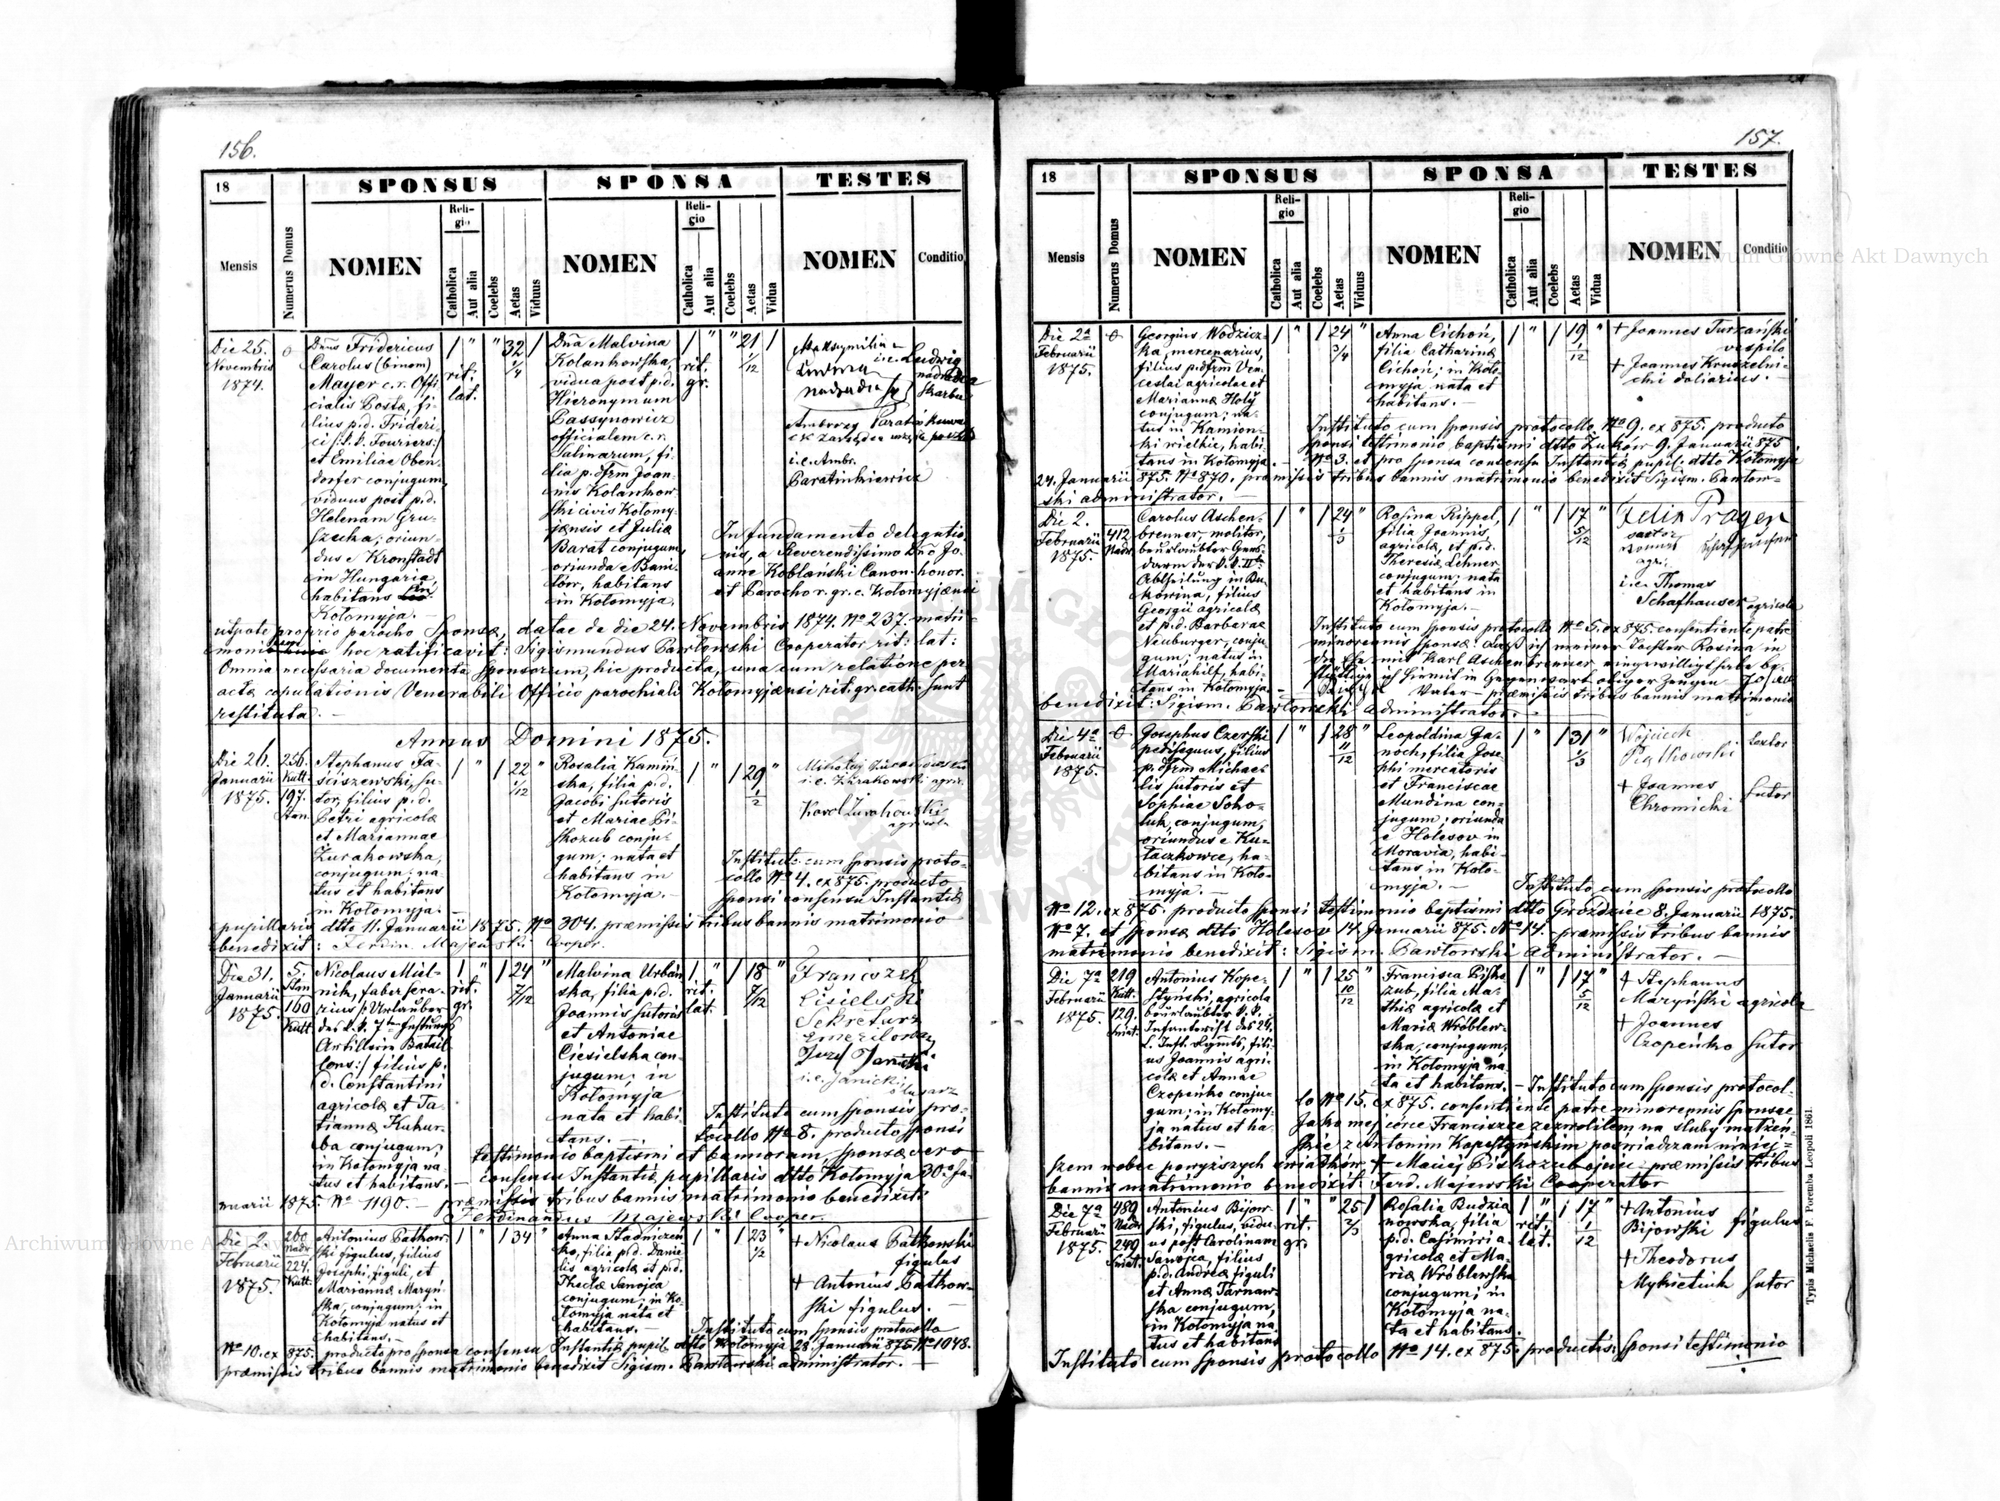 156.
18
SPONSUS
SPONSA
TESTES
Mensis
Numerus Domus
NOMEN
Religio
Catholica
Aut alia
Coelebs
Aetas
Viduus
NOMEN
Religio
Catholica
Aut alia
Coelebs
Aetas
Vidua
NOMEN
Conditio
Die 25.
Novembris
1874.
0
Dnus Fridericus
Carolus (binom)
Mayer c.r. Offi
cialis Postæ, fi
lius p.d. Frideri
ci /: k.k. Fouriers :/
et Emiliae Oben
dorfer conjugum,
viduus post p.d.
Helenam Gru
szecka; oriun
dus e Kronstadt
in Hungaria,
habitans in
Kołomyja.
1 rit. lat.
"
"
32 1/4
1
Dña Malvina
Kolankowska,
vidua post p.d.
Hieronymum
Passynowicz
officialem c.r.
Salinarum, fi
lia p. dfm Joan
nis Kolankow
ski civis Kołomy
jænsis et Juliæ
Barat conjugum,
oriunda e
habitans
in Kołomyja.
1 rit. gr.
"
"
21 1/12
1
i.e. Ludwig
i.e. Ambr.
Baratinkiewicz
In fundamento delegatio
nis, a Reverendissimo Dño Jo
anne Koblański Canon. honor.
et Parocho r. gr. c. Kołomyjænsi
utpote proprio parocho Sponsæ, datae de die 24. Novembris 1874. No 237. matri
monium hoc ratificavit: Sigismundus Pawłowski Cooperator rit: lat:
Omnia necessaria documenta Sponsorum, hic producta, una cum relatione per
actæ copulationis Venerabili Officio parochiali Kołomyjænsi rit. gr. cath. sunt
restituta. —
Annus Domini 1875.
Die 26.
Januarii
1875.
256.
Kutt.
197.
Stan.
Stephanus Ja
siszewski, su
tor, filius p.d.
Petri agricolæ
et Mariannae
Żurakowska,
conjugum; na
tus et habitans
in Kołomyja. —
1
"
1
22 1/12
"
Rosalia Kamiń
ska, filia p.d.
Jacobi sutoris
et Mariae Pi
skozub conju
gum; nata et
habitans in
Kołomyja. —
1
"
1
29 1/2
"
i.e. Żurakowski agric.
Karol Żurakowski
agricola
Instituto cum sponsis proto
collo No 4. ex 875. producto
sponsi consensu Instantiæ
pupillaris dtto 11. Januarii 1875. No 304. præmissis tribus bannis matrimonio
benedixit: Ferdin. Majewski Cooper.
Die 31.
Januarii
1875.
5.
Stan
160
Kutt.
Nicolaus Miel
nik, faber fera
rius /: Urlauber
des k.k. 7ten Festungs
Artillerie Batail
lons :/ filius p.
d. Constantini
agricolæ et Ta
tiannæ Kukur
ba conjugum,
in Kołomyja na
tus et habitans. —
1. rit. gr.
"
1
24 7/12
"
Malvina Urbań
ska, filia p.d.
Joannis sutoris
et Antoniae
Ciesielska con
jugum; in
Kołomyja
nata et habi
tans. —
1. rit. lat.
"
1
18 7/12
"
Franciszek
Lisielski
Sekretarz
emerytowany
Józef Janicki
i.e. Janicki
Instituto cum sponsis pro
tocollo No 8. producto sponsi
testimonio baptismi et bannorum, sponsæ vero
consensu Instantiæ pupillaris dtto Kołomyja 30a Ja
nuarii 1875. No 1190. — præmissis tribus bannis matrimonio benedixit
Ferdinandus Majewski Cooper.
Die 2.
Februarii
1875.
260
Nadw
224.
Kutt.
Antonius Patkow
ski figulus, filius
Josephi, figuli, et
Mariannæ Maryń
ska, conjugum; in
Kołomyja natus et
habitans. —
1
"
1
34
"
Anna Stadniczen
ko, filia p.d. Danie
lis agricolæ et p.d.
Theclæ Sanojca
conjugum, in Ko
łomyja nata et
habitans. —
1
"
1
23 1/2
"
+ Nicolaus Patkowski
figulus
+ Antonius Patkow
ski figulus. —
Instituto cum sponsis protocollo
No 10. ex 875. producto pro sponsa consensu Instantiæ pupil. dtto Kołomyja 28. Januarii 875 No 1048.
præmissis tribus bannis matrimonio benedixit Sigism. Pawłowski administrator. —
157.
18
SPONSUS
SPONSA
TESTES
Mensis
Numerus Domus
NOMEN
Religio
Catholica
Aut alia
Coelebs
Aetas
Viduus
NOMEN
Religio
Catholica
Aut alia
Coelebs
Aetas
Vidua
NOMEN
Conditio
Die 2a
Februarii
1875.
0
Georgius Wodzicz
ka, mercenarius,
filius p. dfm Ven
ceslai agricolæ et
Mariannæ Hoły
conjugum; na
tus in Kamion
ki wielkie, habi
tans in Kołomyja. —
1
"
1
24 3/4
"
Anna Cichoń,
filia Catharinæ
Cichoń; in Koło
myja nata et
habitans. —
1
"
1
19 1/12
"
+ Joannes Turzański
vespilo
+ Joannes Kruszelni
cki doliarius. —
Instituto cum sponsis protocollo No 9. ex 875. producto
sponsi testimonio baptismi dtto Zuków 9. Januarii 875
No 3. et pro sponsa consensu Instantiæ pupil. dtto Kołomyja
24. Januarii 875. No 870. præmissis tribus bannis matrimonio benedixit Sigism. Pawłow-
ski administrator. —
Die 2.
Februarii
1875.
412
Nadw.
Carolus Aschen
brenner, molitor,
beurlaubter Gens
darm der k.k. IVn
Abtheilung in Bu
kowina, filius
Georgii agricolæ
et p.d. Barbarae
Neuburger, conju
gum; natus in
Mariahilf, habi
tans in Kołomyja. —
1
"
1
24 1/3
"
Rosina Rippel,
filia Joannis
agricolæ, et p.d.
Theresiæ Lehner
conjugum; nata
et habitans in
Kołomyja. —
1
"
1
17 5/12
"
Felix Pragen
i.e. Thomas
Schafhauser agricola
Instituto cum sponsis protocollo No 5. ex 875. consentiente patre
minorennis sponsæ: daß ich meiner Tochter Rosina in
die Ehe mit Karl Aschenbrenner eingewilligt habe be
stättige ich hiemit in Gegenwart obiger Zeugen
Vater — præmissis tribus bannis matrimonio
benedixit: Sigism. Pawłowski administrator. —
Die 4a
Februarii
1875.
0
Josephus Czerski
pedissequus, filius
p. dfm Michae
lis sutoris et
Sophiae Soko
luk, conjugum,
oriundus e Ku
łaczkowce, ha
bitans in Koło
myja. —
1
"
1
28 11/12
"
Leopoldina Ja
noch, filia Jose
phi mercatoris
et Franciscae
Mundina con
jugum; oriunda
e Holesov in
Moravia, habi
tans in Koło
myja. —
1
"
1
31 1/3
"
Wojciech
Piątkowski
+ Joannes
Chromicki
sutor
Instituto cum sponsis protocollo
No 12. ex 875. producto sponsi testimonio baptismi dtto Gwoździec 8. Januarii 1875.
No 7. et sponsæ dtto Holesov 14. Januarii 875. No 14. præmissis tribus bannis
matrimonio benedixit: Sigism. Pawłowski administrator. —
Die 7a
Februarii
1875.
219
Kutt.
129.
Sniat.
Antonius Kope
styński, agricola
beurlaubter k.k.
Infanterist des 24.
L. Inft. Rgmts, fili
us Joannis agri
colæ et Annae
Czopenko conju
gum; in Kołomy
ja natus et ha
bitans. —
1
"
1
25 10/12
"
Francisca Pisko
zub, filia Ma
thiæ agricolæ et
Mariæ Wróblew
ska, conjugum,
in Kołomyja na
ta et habitans. —
1
"
1
17 5/12
"
+ Stephanus
Maryński agricola
+ Joannes
Czopeńko sutor
Instituto cum sponsis protocol-
lo No 15. ex 875. consentiente patre minorennis sponsae
Jako mej córce Franciszce zezwoliłem na śluby małżeń-
skie z Antonim Kopestyńskim poswiadczam niniej-
szem wobec powyższych świadków. + Maciej Piskozub ojciec — præmissis tribus
bannis matrimonio benedixit Ferd. Majewski Cooperator
Die 7a
Februarii
1875.
489
Nadw
249
Sniat.
Antonius Bijow
ski, figulus, vidu
us post Carolinam
Sanojca, filius
p.d. Andreæ figuli
et Annæ Tarnaw
ska conjugum,
in Kołomyja na
tus et habitans
1 rit. gr.
"
"
25 2/3
1
Rosalia Budzia
nowska, filia
p.d. Casimiri a
gricolæ et Ma
riæ Wróblewska
conjugum; in
Kołomyja na
ta et habitans
1 rit. lat.
"
1
17 1/12
"
+ Antonius
Bijowski figulus
+ Theodorus
Mykietiuk sutor
Instituto cum sponsis protocollo No 14. ex 875. productis sponsi testimonio
Typis Michaelis F. Poremba Leopoli 1861.
Archiwum Główne Akt Dawnych